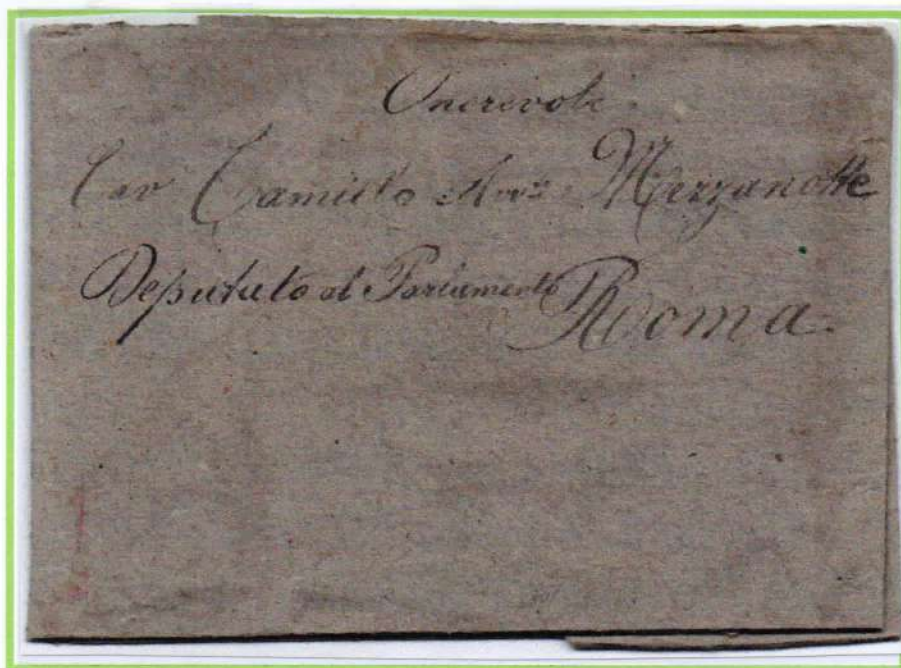 Onorevole
Cav Camillo Mezzanotte
Deputato al Parlamento Roma